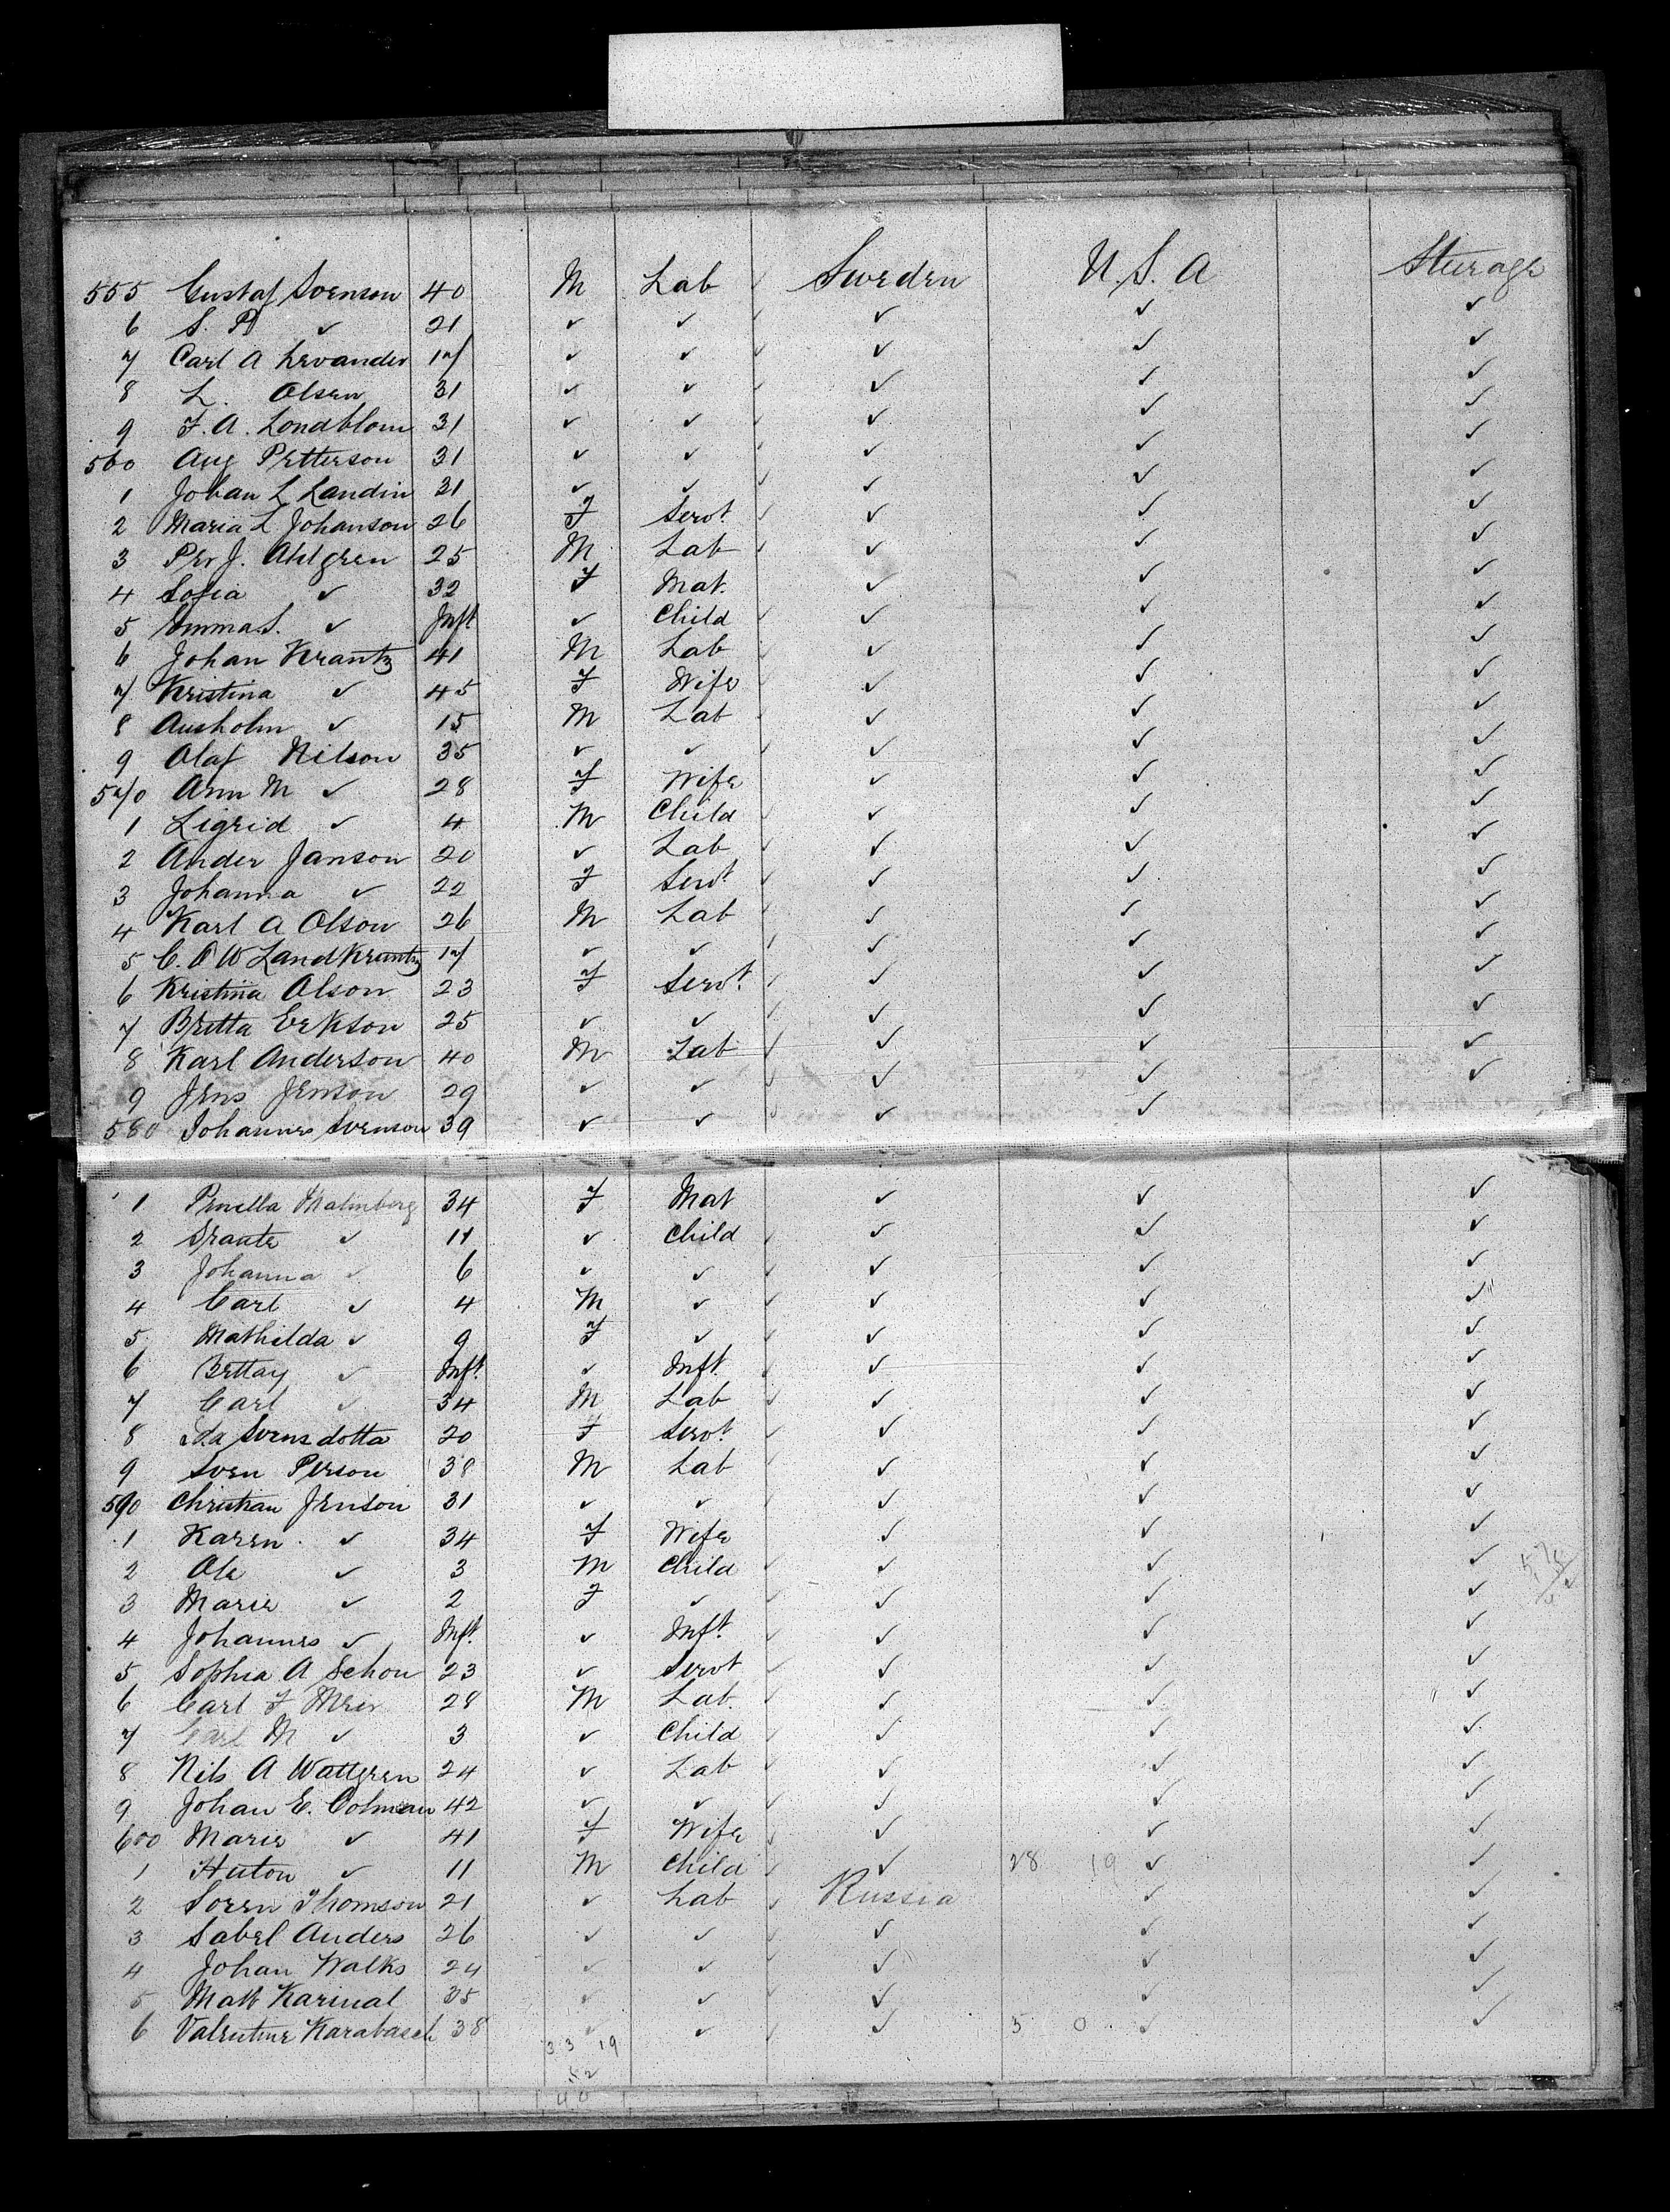 555 Gustaf Svenson 40 M Lab Sweden U.S.A Steerage
6 S. P ✓ 21 ✓ ✓ ✓ ✓ ✓
7 Carl A 17 ✓ ✓ ✓ ✓ ✓
8 L. Olsen 31 ✓ ✓ ✓ ✓ ✓
9 F. A. Londblom 31 ✓ ✓ ✓ ✓ ✓
560 Aug Petterson 31 ✓ ✓ ✓ ✓ ✓
1 Johan L Landin 21 ✓ ✓ ✓ ✓ ✓
2 Maria L Johanson 26 F Servt. ✓ ✓ ✓
3 Per J. Ahlgren 25 M Lab ✓ ✓ ✓
4 Sofia ✓ 32 F Mat. ✓ ✓ ✓
5 Emma S. ✓ Inft ✓ Child ✓ ✓ ✓
6 Johan Krantz 41 M Lab ✓ ✓ ✓
7 Kristina ✓ 45 F Wife ✓ ✓ ✓
8 Ausholm ✓ 15 M Lab ✓ ✓ ✓
9 Olaf Nilson 35 ✓ ✓ ✓ ✓ ✓
570 Ann M ✓ 28 F Wife ✓ ✓ ✓
1 Sigrid ✓ 4 M Child ✓ ✓ ✓
2 Ander Janson 20 ✓ Lab ✓ ✓ ✓
3 Johanna ✓ 22 F Servt ✓ ✓ ✓
4 Karl A Olson 26 M Lab ✓ ✓ ✓
5 C. A W Landkrantz 17 ✓ ✓ ✓ ✓ ✓
6 Kristina Olson 23 F Servt. ✓ ✓ ✓
7 Britta Erkson 25 ✓ ✓ ✓ ✓ ✓
8 Karl Anderson 40 M Lab ✓ ✓ ✓
9 Jens Jenson 29 ✓ ✓ ✓ ✓ ✓
580 Johannes Svenson 39 ✓ ✓ ✓ ✓
1 Pernella Malmberg 34 F Mat ✓ ✓ ✓
2 ✓ 11 ✓ Child ✓ ✓ ✓
3 Johanna ✓ 6 ✓ ✓ ✓ ✓ ✓
4 Carl ✓ 4 M ✓ ✓ ✓ ✓
5 Mathilda ✓ 9 F ✓ ✓ ✓ ✓
6 Bettay ✓ Inft. ✓ Inft. ✓ ✓ ✓
7 Carl ✓ 34 M Lab ✓ ✓ ✓
8 Ida Svensdotta 20 F Servt. ✓ ✓ ✓
9 Sven Person 38 M Lab ✓ ✓ ✓
590 Christian Jenson 31 ✓ ✓ ✓ ✓ ✓
1 Karen ✓ 34 F Wife ✓ ✓ ✓
2 Ole ✓ 3 M Child ✓ ✓ ✓
3 Marie ✓ 2 F ✓ ✓ ✓ ✓
4 Johannes ✓ Inft. ✓ Inft. ✓ ✓ ✓
5 Sophia A Schou 23 ✓ Servt ✓ ✓ ✓
6 Carl F 28 M Lab. ✓ ✓ ✓
7 Carl M ✓ 3 ✓ Child ✓ ✓ ✓
8 Nils A Wattgren 24 ✓ Lab ✓ ✓ ✓
9 Johan E. Colman 42 ✓ ✓ ✓ ✓ ✓
600 Marie ✓ 41 F Wife ✓ ✓ ✓
1 Huton ✓ 11 M Child ✓ 28 19 ✓ ✓
2 Soren Thomson 21 ✓ Lab Russia ✓ ✓
3 Sabel Anders 26 ✓ ✓ ✓ ✓ ✓
4 Johan Walks 24 ✓ ✓ ✓ ✓ ✓
5 Matt Karinal 35 ✓ ✓ ✓ ✓ ✓
6 Valentine Karabasch 38 ✓ ✓ ✓ 5 0 ✓ ✓
33 19
52
40